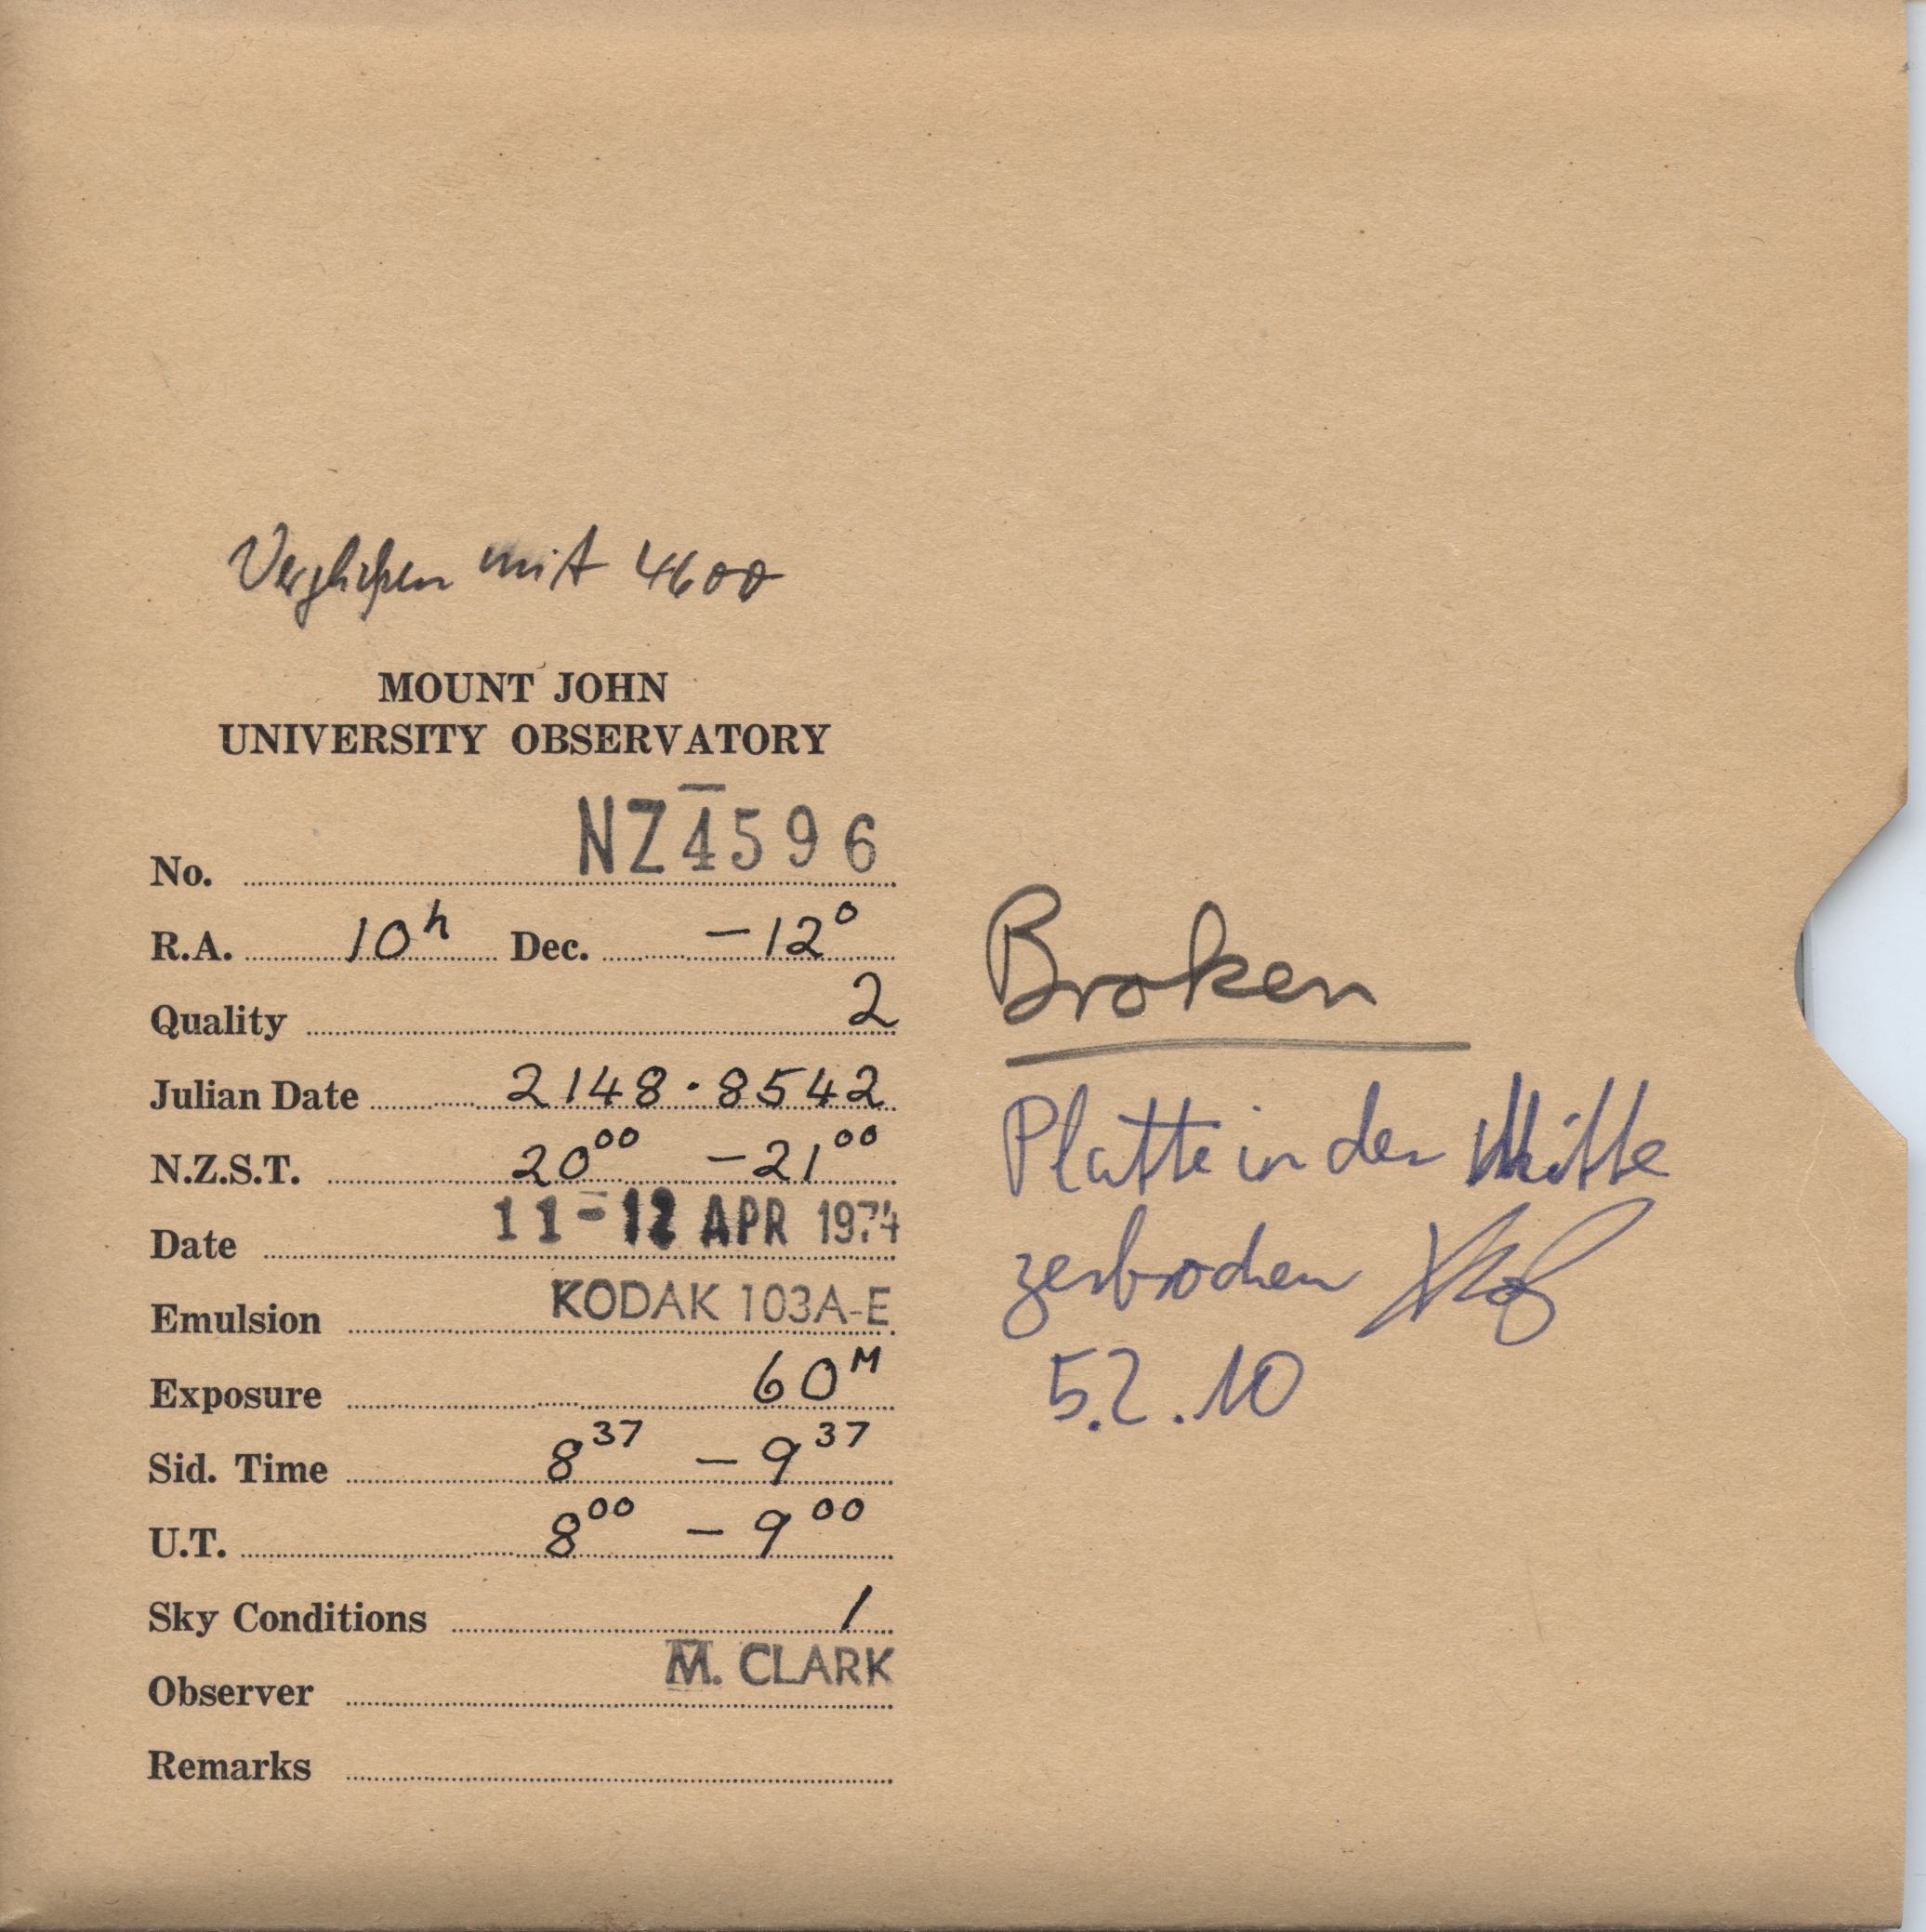 Verglichen mit 4600
MOUNT JOHN
UNIVERSITY OBSERVATORY
No. NZ4596
R.A. 10h Dec. -12°
Quality 2
Julian Date 2148.8542
N.Z.S.T. 20 00 - 21 00
Date 11-12 APR 1974
Emulsion KODAK 103A-E
Exposure 60M
Sid. Time 8 37 - 9 37
U.T. 8 00 - 9 00
Sky Conditions 1
Observer M. CLARK
Remarks
Broken
Platte in der Mitte
zerbrochen
5.2.10